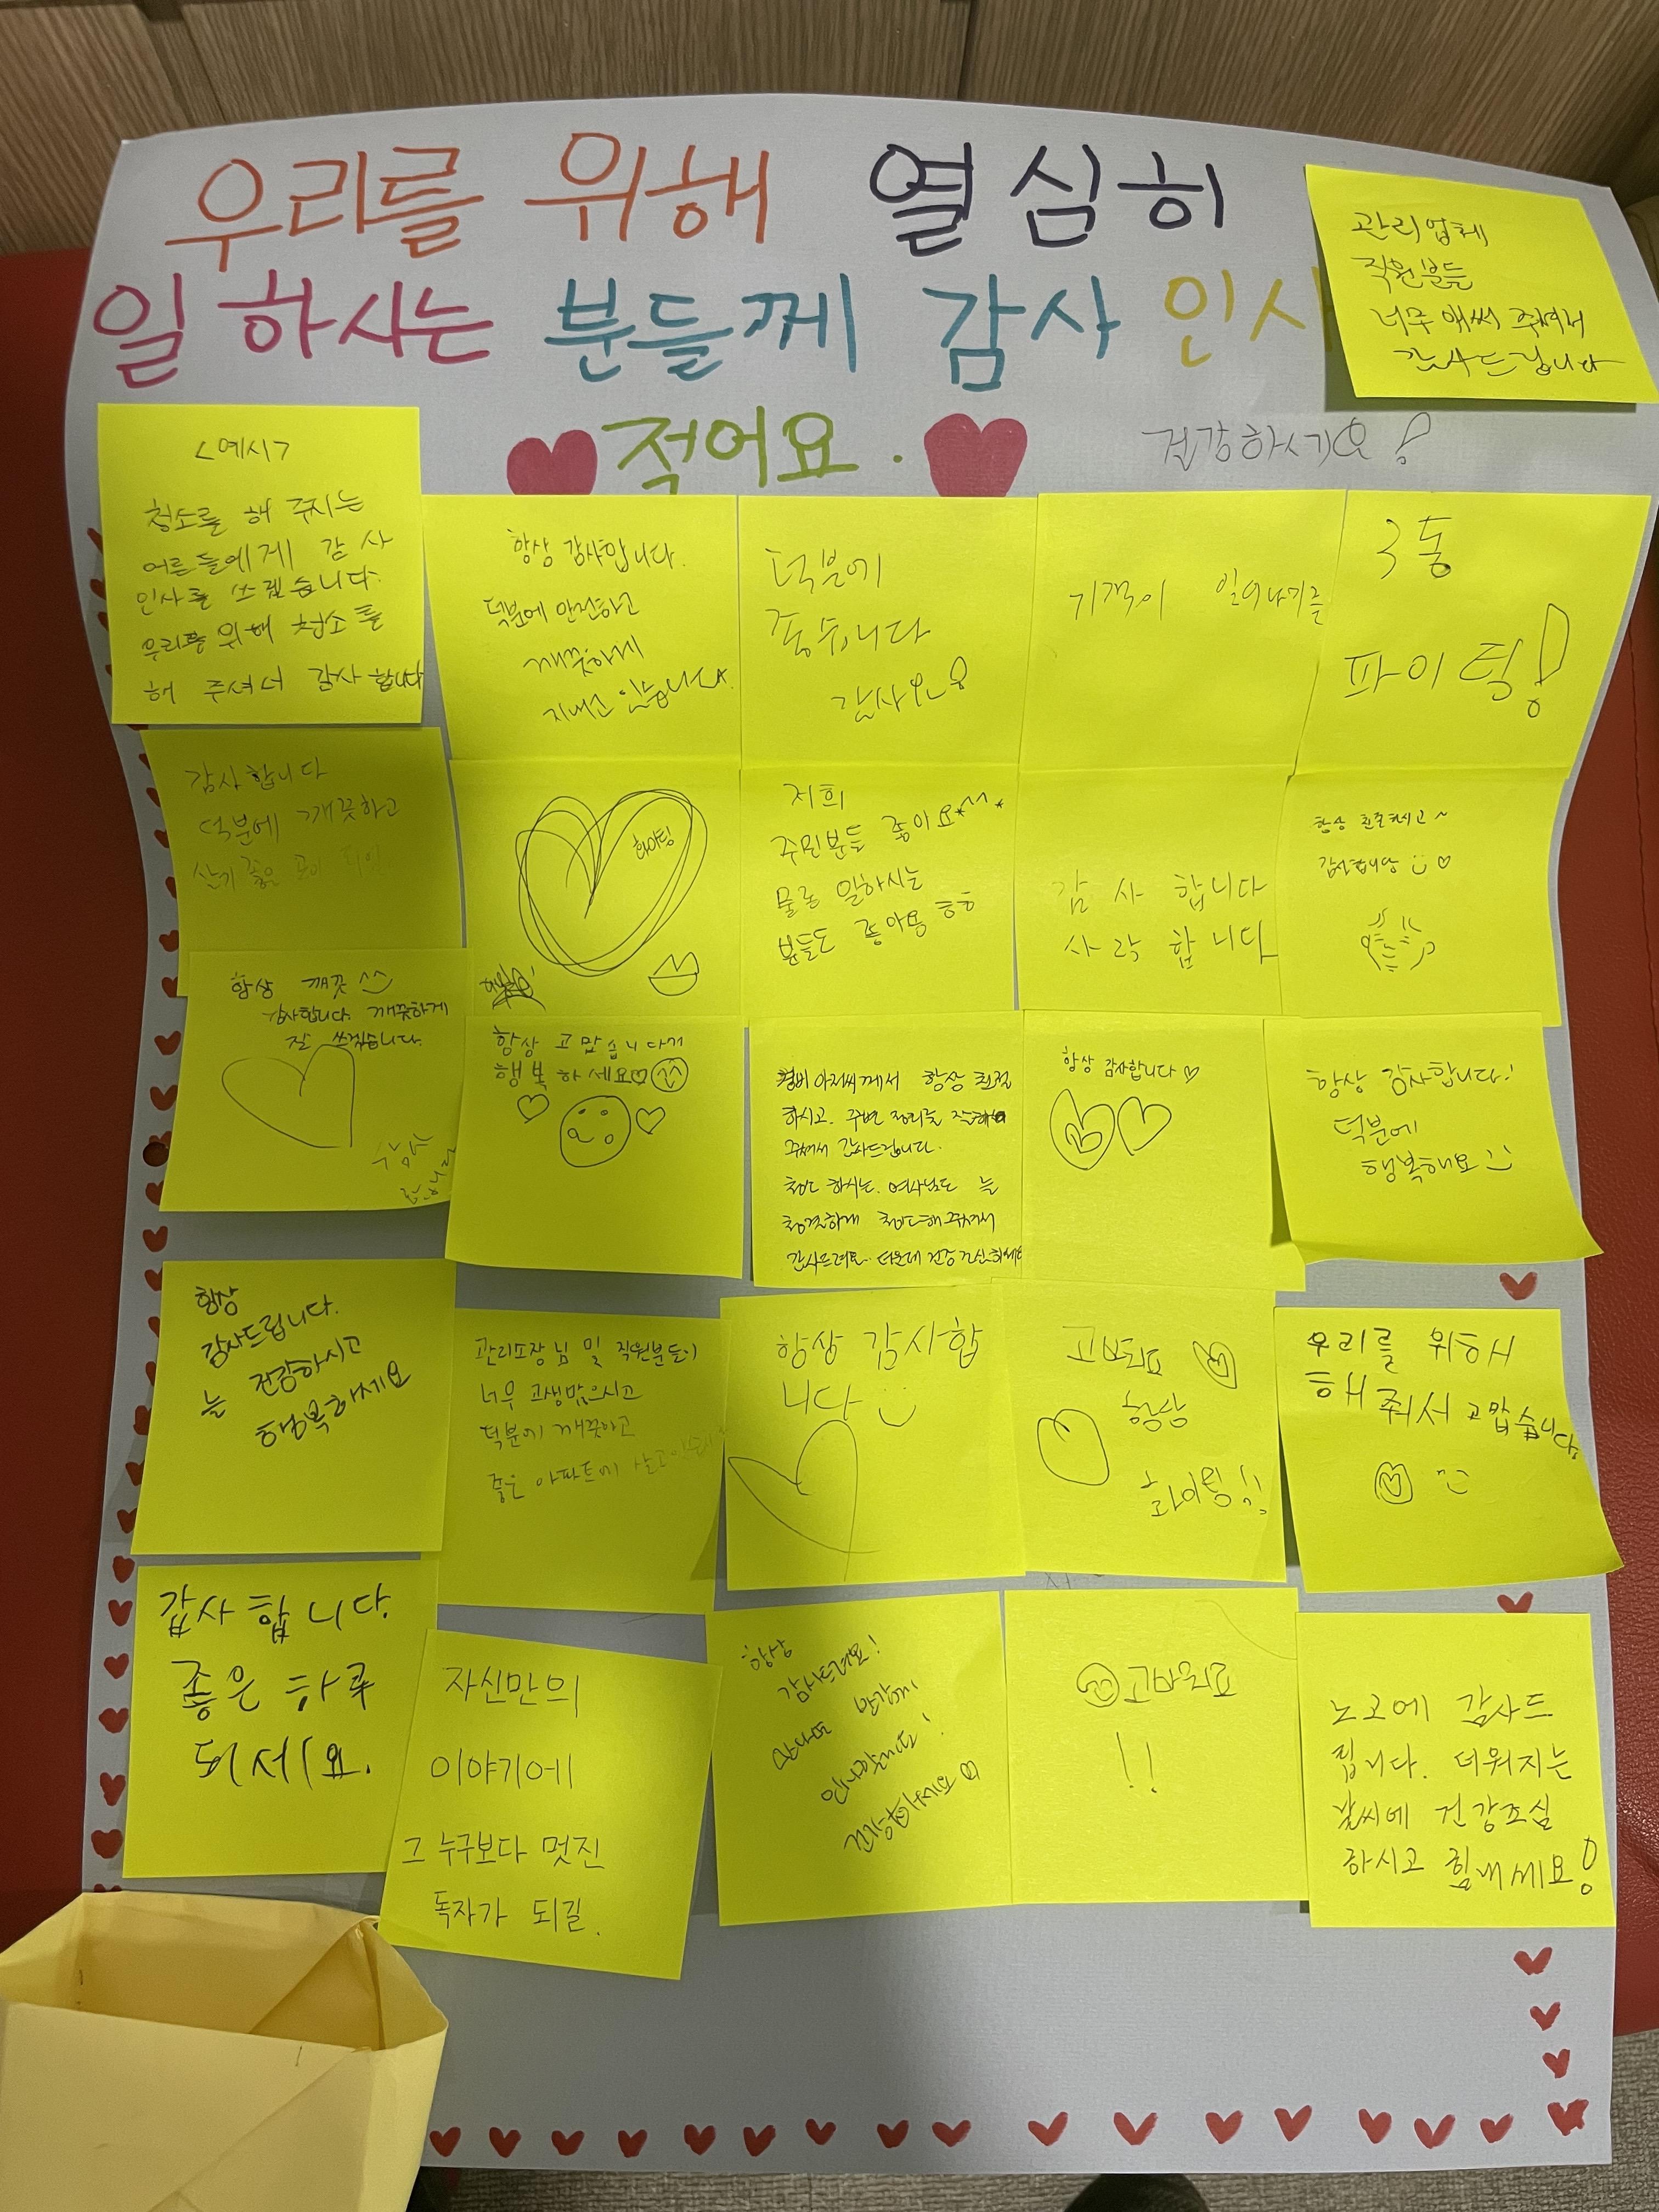 우리를 위해 열심히
일 하시는 분들께 감사 인사
적어요.
건강하세요!
관리업체
직원분들
너무 애써 주셔서
감사드립니다
<예시>
청소를 해 주시는
어른들에게 감사
인사를 쓰겠습니다.
우리를 위해 청소를
해 주셔서 감사합니다
항상 감사합니다.
덕분에 안전하고
깨끗하게
지내고 있습니다.
덕분에
좋습니다
감사요!
3동
파이팅!
감사합니다
덕분에 깨끗하고
살기 좋은 곳이
화이팅
저희
주민분들 좋아요*^^*
물론 일하시는
분들도 좋아용 ㅎㅎ
감사합니다
사랑합니다
항상 친절하시고~
감사합니당
항상 깨끗
감사합니다 깨끗하게
잘 쓰겠습니다.
항상 고맙습니다
행복하세요
경비아저씨께서 항상 친절
하시고. 주변 정리를 잘해
주셔서 감사드립니다.
청소 하시는. 여사님도 늘
청결하게 청소해주셔서
감사드려요. 더운데 건강 조심하세요
항상 감사합니다
항상 감사합니다!
덕분에
행복해요
항상
감사드립니다.
늘 건강하시고
행복하세요
관리소장님 및 직원분들이
너무 고생많으시고
덕분에 깨끗하고
좋은 아파트에 살고
항상 감사합
니다
항상
화이팅!!
우리를 위해서
해 줘서 고맙습니다.
감사합니다.
좋은 하루
되세요.
자신만의
이야기에
그 누구보다 멋진
독자가 되길.
항상
감사드려요!
만나면 반갑게
건강하세요
고마워요
!!
노고에 감사드
립니다. 더워지는
날씨에 건강조심
하시고 힘내세요!